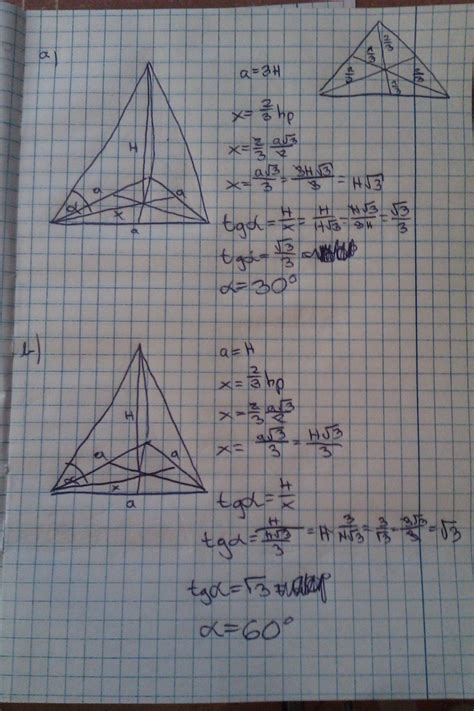 a)
a=3H
x=2/3 hp
x=2/3 a√3/2
x=a√3/3=3H√3/3=H√3
tgα=H/x=H/H√3=H√3/3H=√3/3
tgα=√3/3
α=30°
H
α
a
a
x
a
b)
a=H
x=2/3 hp
x=2/3 a√3/2
x=a√3/3=H√3/3
tgα=H/x
tgα=H/(H√3/3)=H·3/H√3=3/√3=3√3/3=√3
tgα=√3
α=60°
H
α
a
a
x
a